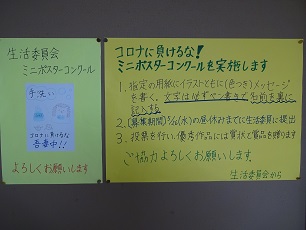 生活委員会
ミニポスターコンクール
手洗い
コロナに負けるな
吾妻中!!
よろしくお願いします
コロナに負けるな!
ミニポスターコンクールを実施します
1. 指定の用紙にイラストともに(色つき)メッセージ
を書く。文字は必ずペン書きで名前を裏に
記入する
2. (募集期間) (水)の昼休みまでに生活委員に提出
3. 投票を行い、優秀作品には賞状と賞品を贈ります
ご協力よろしくお願いします。
生活委員会から